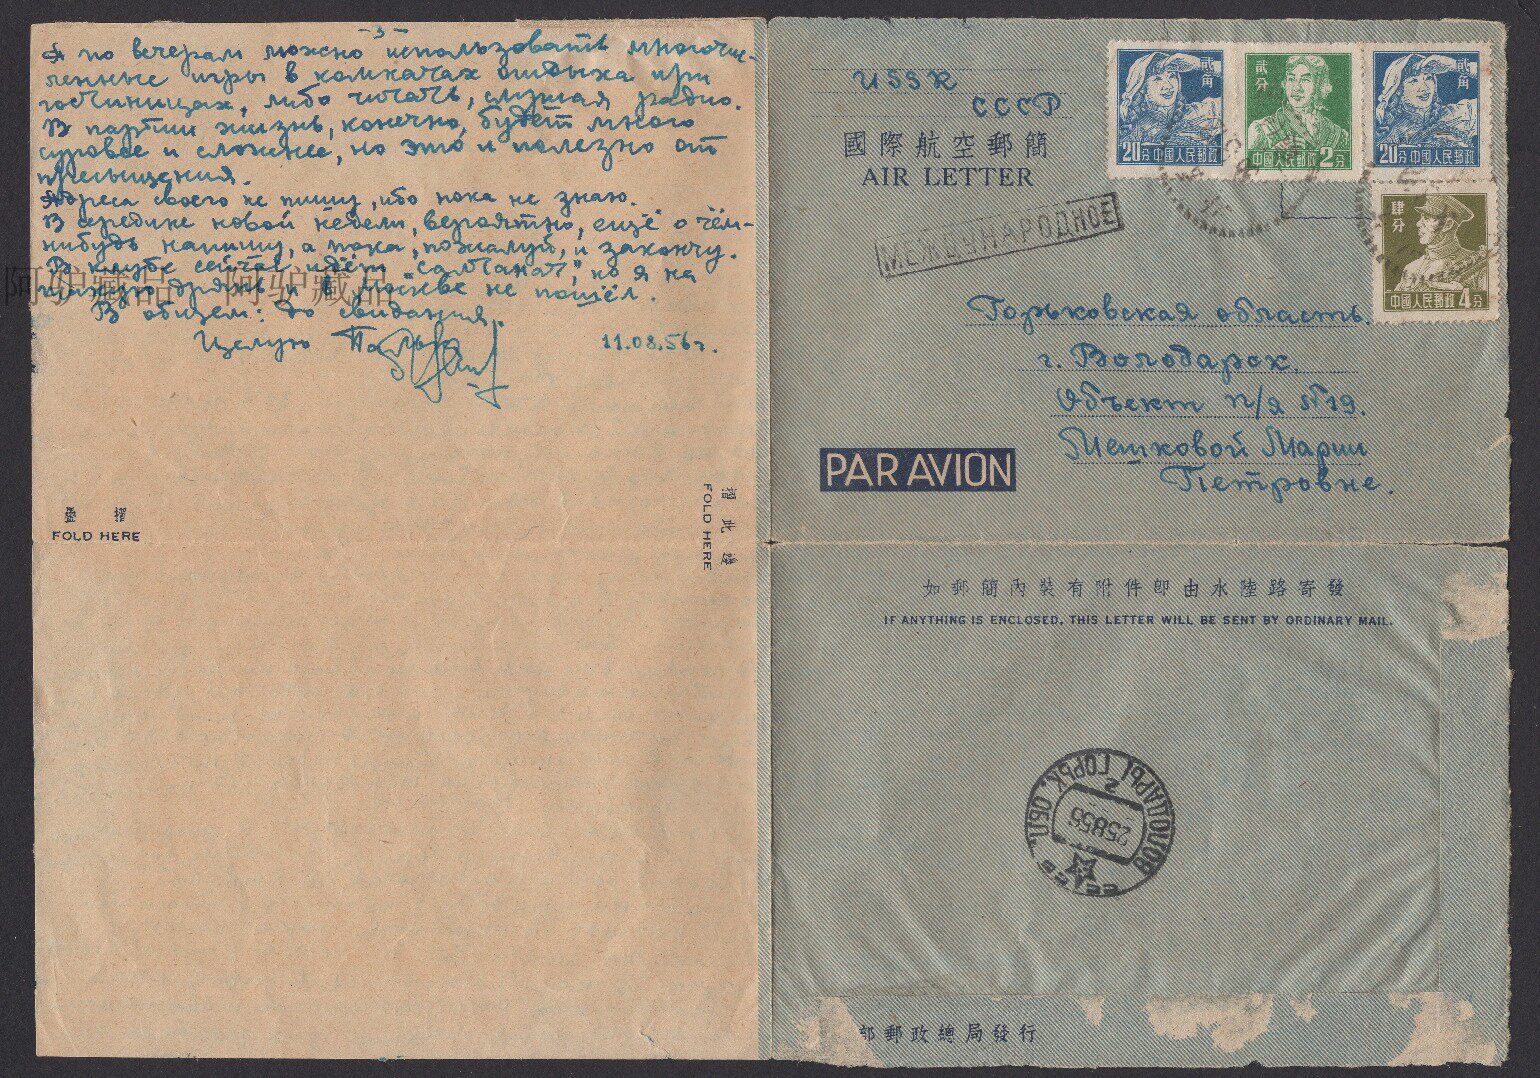 -3-
А по вечерам можно использовать многочис-
ленные игры в комнатах отдыха при
гостиницах, либо читать, слушая радио.
В партии жизнь, конечно, будет много
суровее и сложнее, но это и полезно от
пресыщения.
Адреса своего не пишу, ибо пока не знаю.
В середине новой недели, вероятно, ещё о чём-
нибудь напишу, а пока, пожалуй, и закончу.
В клубе сейчас идёт "Салтанат", но я на
такую дрянь и в Москве не пошёл.
В общем: до свидания.
Целую
11.08.56г.
阿驴藏品 阿驴藏品
摺 疊
FOLD HERE
摺此邊
FOLD HERE
USSR
СССР
國際航空郵簡
AIR LETTER
МЕЖДУНАРОДНОЕ
貳角
20分 中國人民郵政
貳分
中國人民郵政 2分
貳角
20分 中國人民郵政
肆分
中國人民郵政 4分
Горьковская область.
г. Володарск.
Объект п/я №19.
Мешковой Марии
Петровне.
PAR AVION
如郵簡內裝有附件卽由水陸路寄發
IF ANYTHING IS ENCLOSED, THIS LETTER WILL BE SENT BY ORDINARY MAIL.
ВОЛОДАРЫ ГОРЬК. ОБЛ.
2
25856
部郵政總局發行